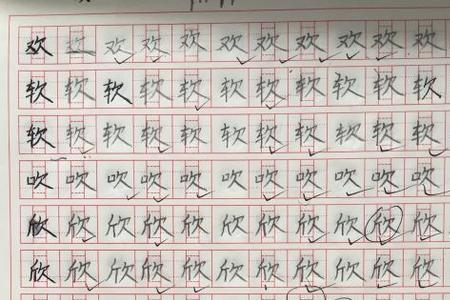 欢 欢 欢 欢 欢 欢 欢 欢 欢 欢 欢
软 软 软 软 软 软 软 软 软 软 软
软 软 软 软 软 软 软 软 软 软 软
吹 吹 吹 吹 吹 吹 吹 吹 吹 吹 吹
欣 欣 欣 欣 欣 欣 欣 欣 欣 欣 欣
欣 欣 欣 欣 欣 欣 欣 欣 欣 欣 欣